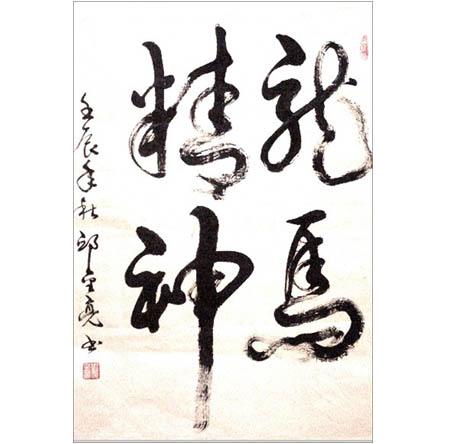 龍馬
精神
壬辰年秋邱金亮书